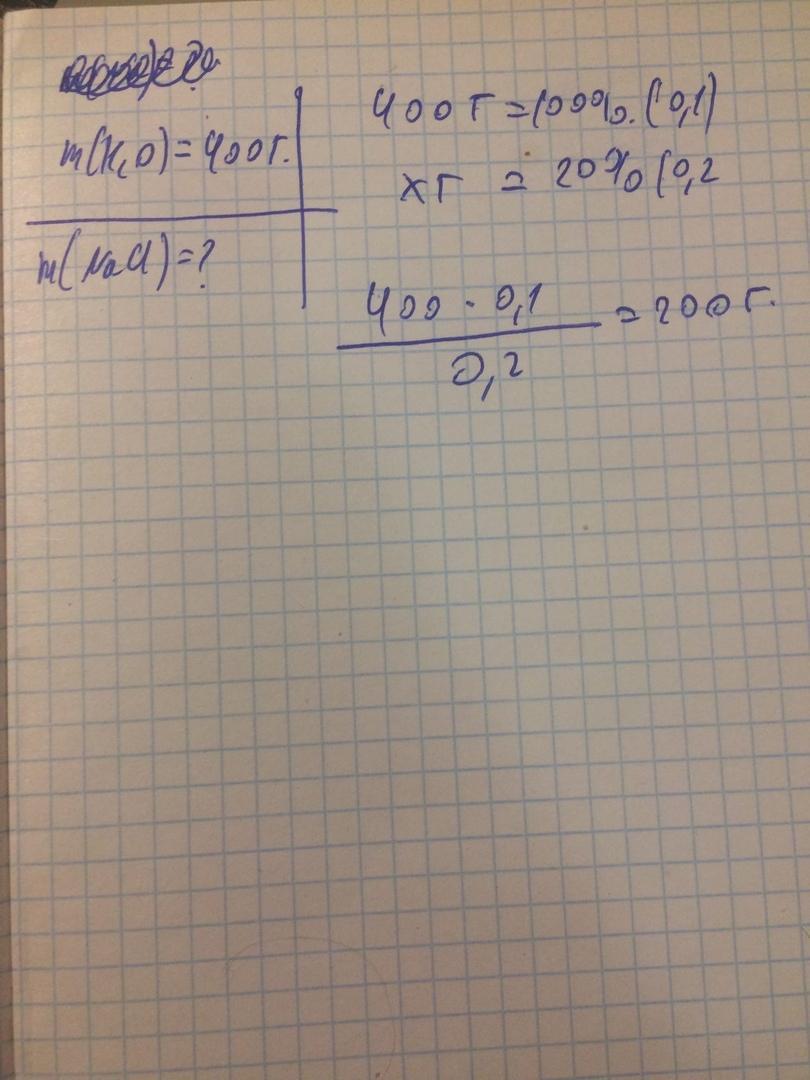 m(H₂O) = 400г.
m(NaCl) = ?
400 г = 100%. (0,1)
х г = 20% (0,2
400 · 0,1
0,2
= 200 г.